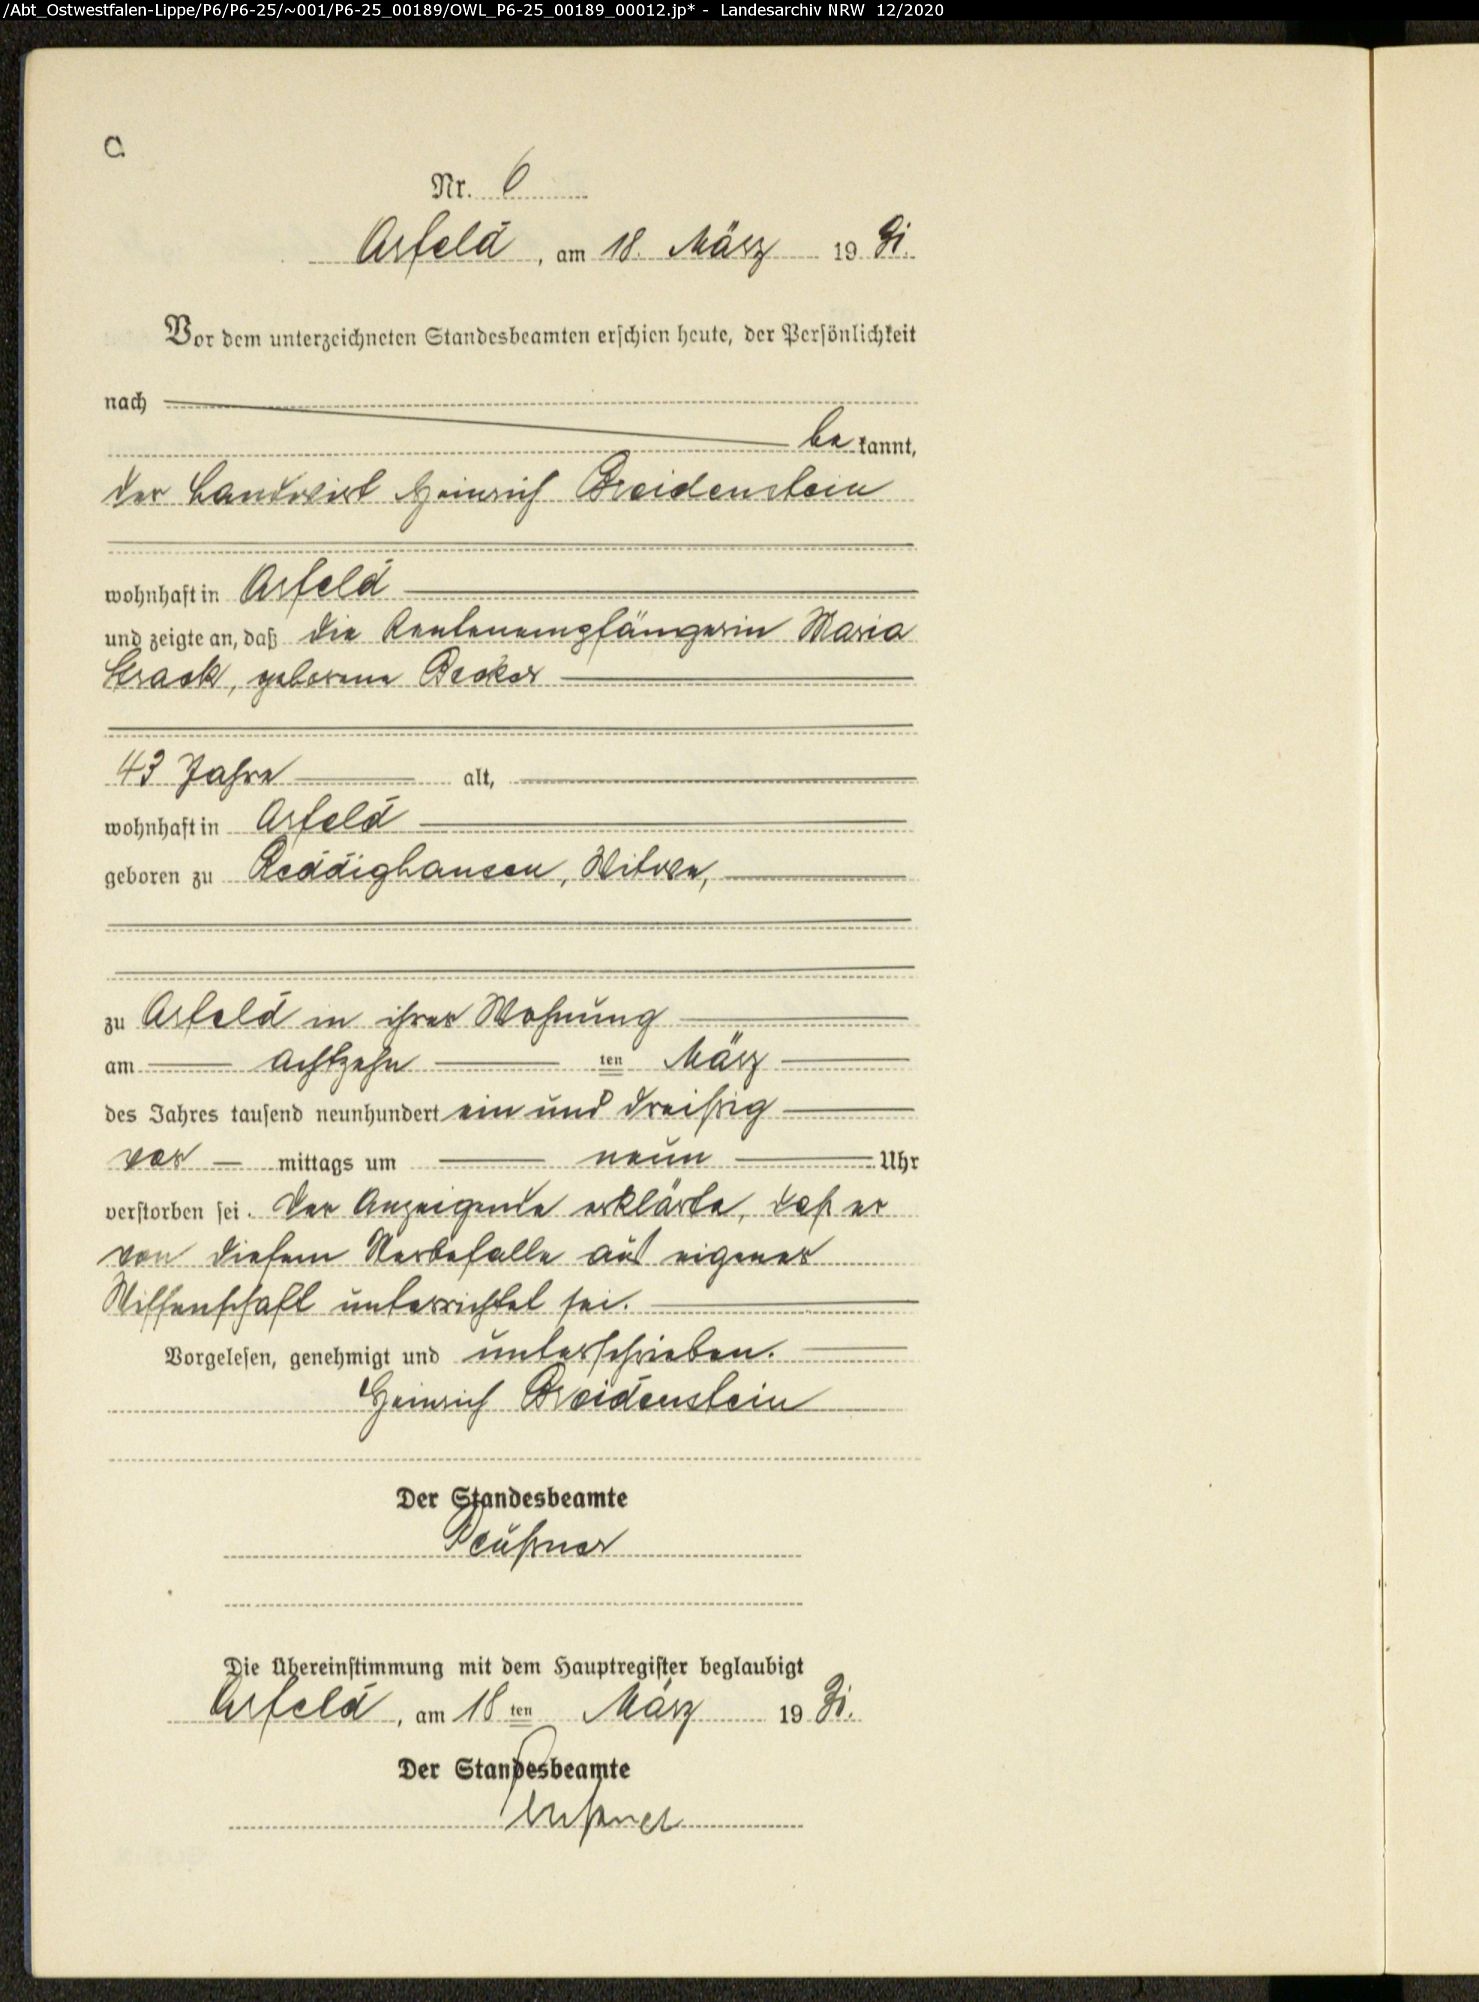 /Abt_Ostwestfalen-Lippe/P6/P6-25/~001/P6-25_00189/OWL_P6-25_00189_00012.jp* - Landesarchiv NRW 12/2020
C
Nr. 6
Arfeld, am 18. März 1931.
Vor dem unterzeichneten Standesbeamten erschien heute, der Persönlichkeit
nach
be kannt,
der Landwirt Heinrich Breidenstein
wohnhaft in Arfeld
und zeigte an, daß die Rentenempfängerin Maria
Strack, geborene Becker
43 Jahre alt,
wohnhaft in Arfeld
geboren zu Reddighausen, Witwe,
zu Arfeld in ihrer Wohnung
am achtzehn ten März
des Jahres tausend neunhundert ein und dreißig
vor mittags um neun Uhr
verstorben sei. Der Anzeigende erklärte, daß er
von diesem Sterbefalle aus eigener
Wissenschaft unterrichtet sei.
Vorgelesen, genehmigt und unterschrieben.
Heinrich Breidenstein
Der Standesbeamte
Die Übereinstimmung mit dem Hauptregister beglaubigt
Arfeld, am 18 ten März 1931.
Der Standesbeamte